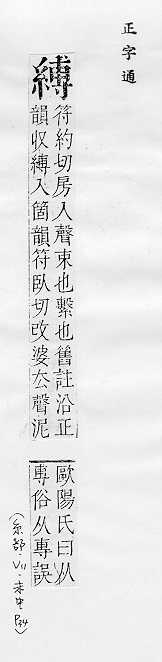 正字通
縛
符約切房入聲束也繫也舊註沿正
韻收縛入箇韻符臥切改婆去聲泥
歐陽氏曰从
專俗从專誤